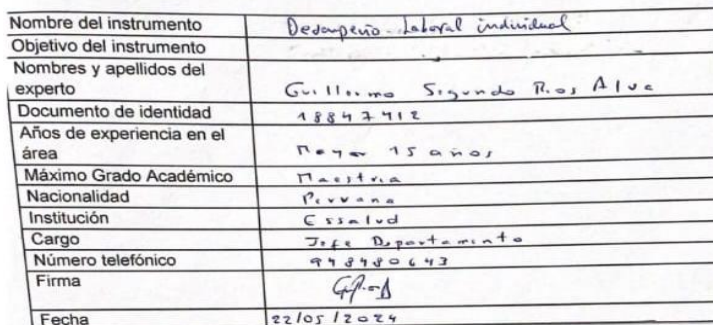 Nombre del instrumento Desempeño Laboral individual
Objetivo del instrumento
Nombres y apellidos del
experto Guillermo Segundo Rios Alva
Documento de identidad 18847412
Años de experiencia en el
área Mayor 15 años
Máximo Grado Académico Maestria
Nacionalidad Peruana
Institución Essalud
Cargo Jefe Departamento
Número telefónico 948480643
Firma
Fecha 22/05/2024